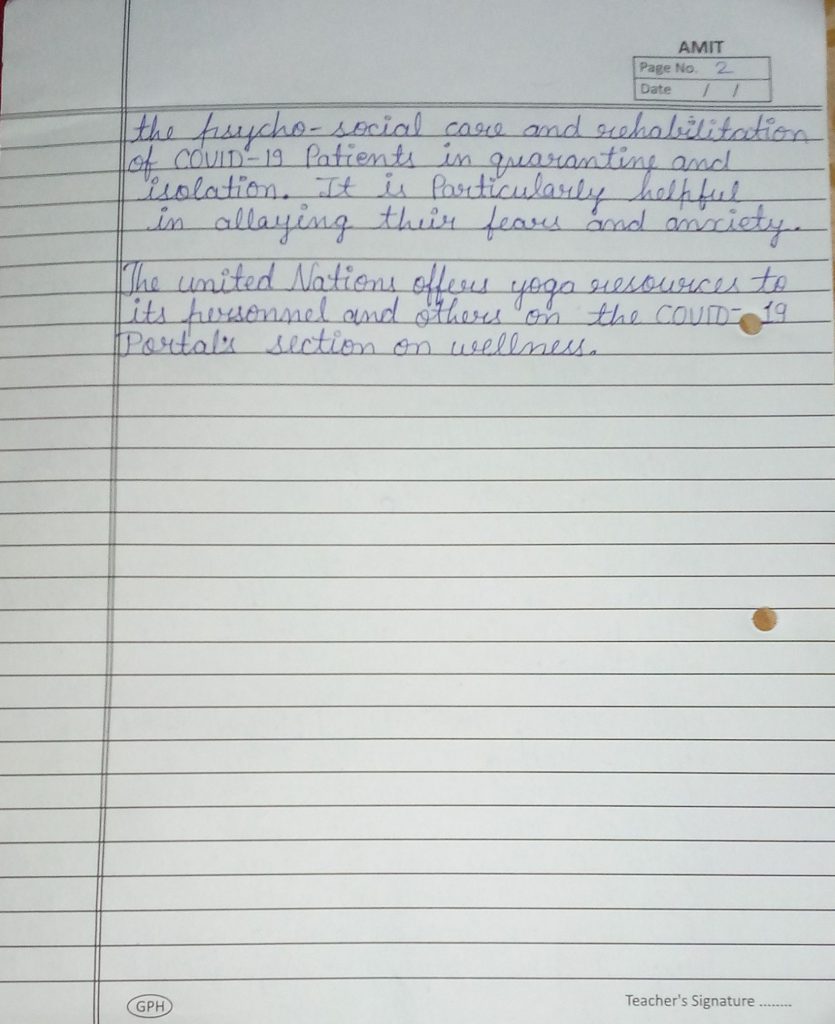 AMIT
Page No. 2
Date / /
the psycho-social care and rehabilitation
of COVID-19 Patients in quarantine and
isolation. It is Particularly helpful
in allaying their fears and anxiety.
The united Nations offers yoga resources to
its personnel and others on the COVID-19
Portal's section on wellness.
GPH
Teacher's Signature ........